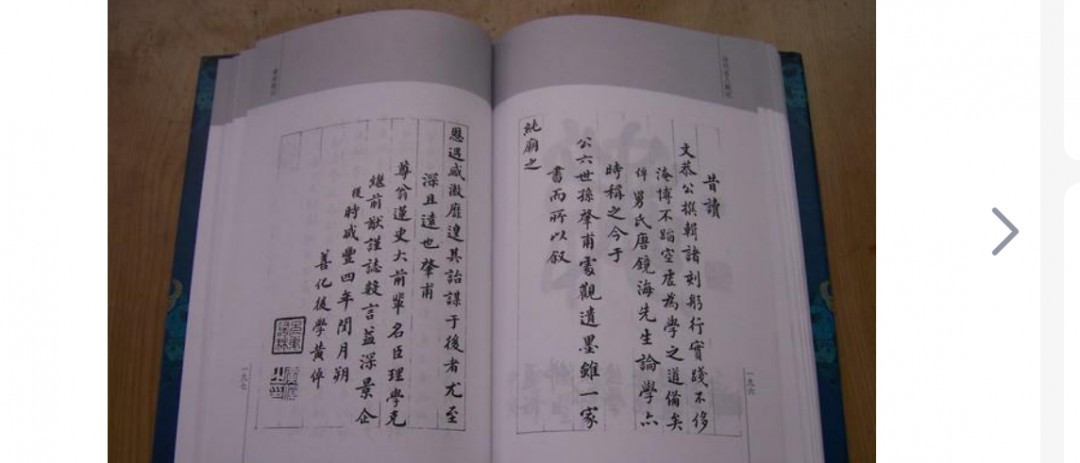 昔讀
文恭公撰輯諸刻躬行實踐不侈
淹博不蹈空虛為學之道備矣
倬舅氏唐鏡海先生論學亦
時稱之今于
公六世孫肇甫處觀遺墨雖一家
書而所以叙
純廟之
恩遇感激靡遑其詒謀于後者尤至
深且遠也肇甫
尊翁蓮史大前輩名臣理學克
繼前猷謹誌數言益深景企
後時咸豐四年閏月朔
善化後學黃倬
一九六
一九七